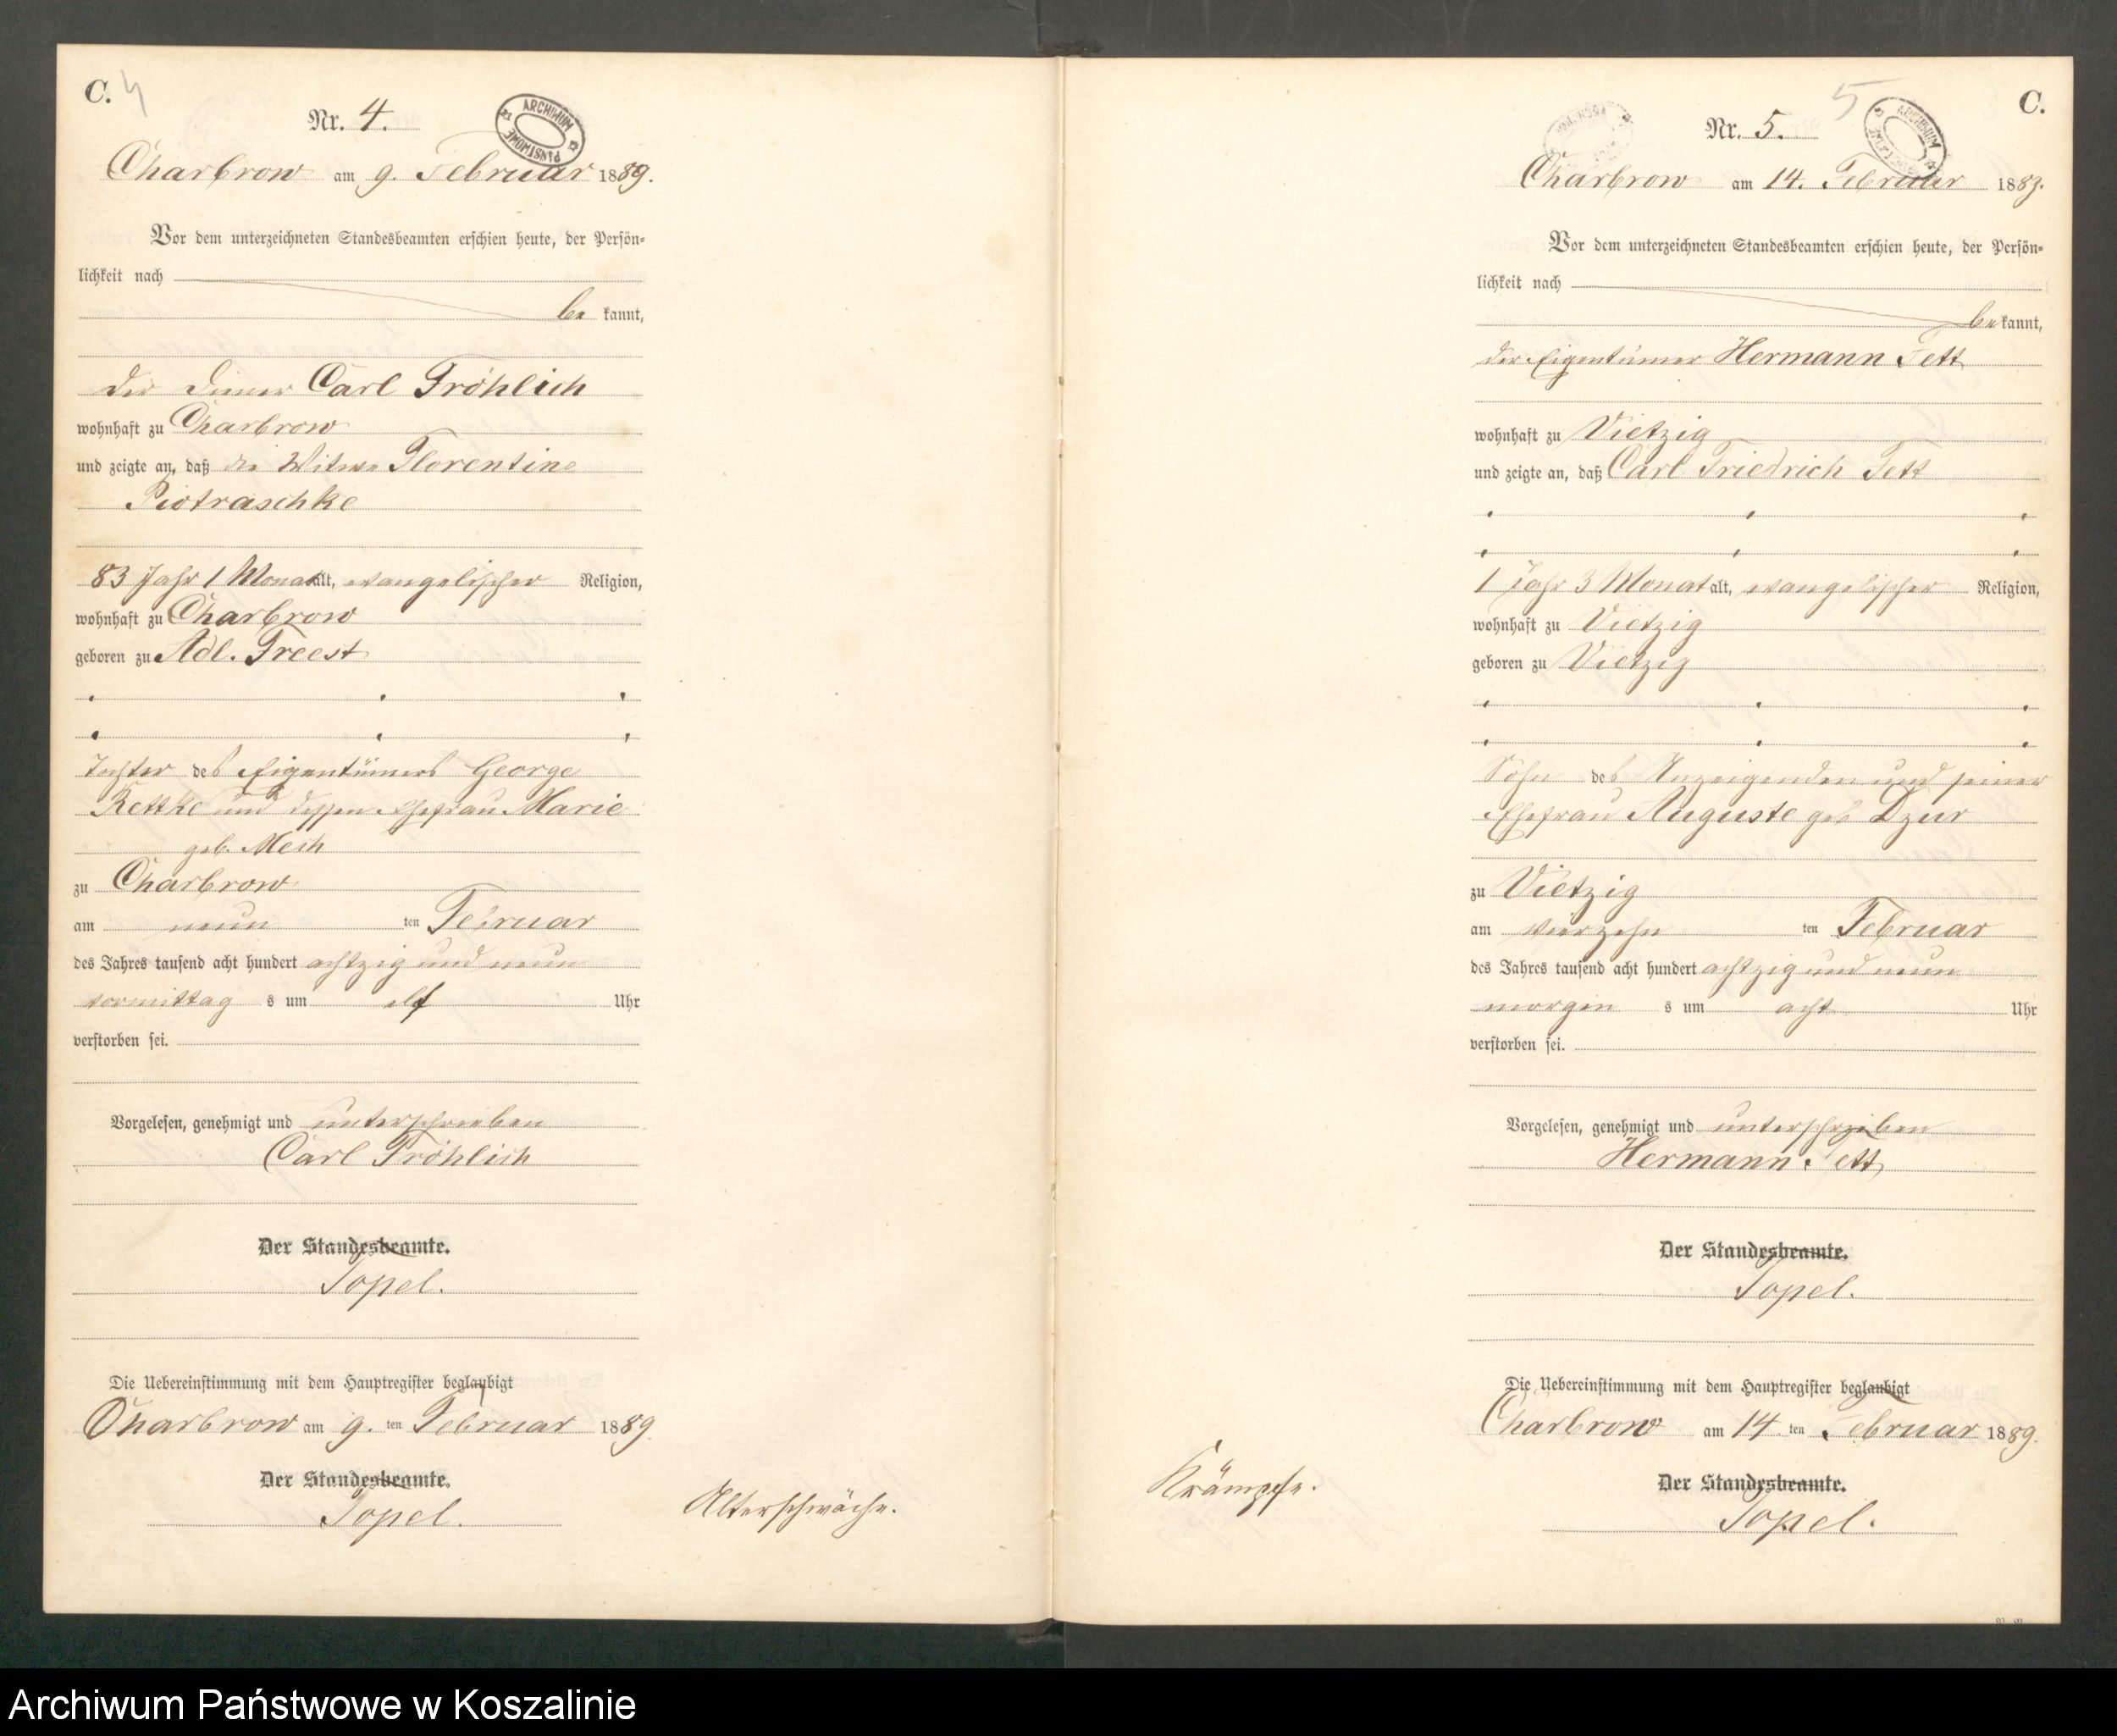 C. 4
Nr. 4.
ARCHIWUM PAŃSTWOWE
Charbrow am 9. Februar 1889.
Vor dem unterzeichneten Standesbeamten erschien heute, der Persön-
lichkeit nach
be kannt,
der Diener Carl Fröhlich
wohnhaft zu Charbrow
und zeigte an, daß die Witwe Florentine
Piotraschke
83 Jahr 1 Monat alt, evangelischer Religion,
wohnhaft zu Charbrow
geboren zu Adl. Freest
Tochter des Eigentümers George
Kettke und dessen Ehefrau Marie
geb. Mesh
zu Charbrow
am neun ten Februar
des Jahres tausend acht hundert achtzig und neun
vormittag s um elf Uhr
verstorben sei.
Vorgelesen, genehmigt und unterschrieben
Carl Fröhlich
Der Standesbeamte.
Topel.
Die Uebereinstimmung mit dem Hauptregister beglaubigt
Charbrow am 9. ten Februar 1889
Der Standesbeamte.
Topel.
Alterschwäche.
5 C.
Nr. 5.
ARCHIWUM
Charbrow am 14. Februar 1889.
Vor dem unterzeichneten Standesbeamten erschien heute, der Persön-
lichkeit nach
be kannt,
der Eigentümer Hermann Fett
wohnhaft zu Vietzig
und zeigte an, daß Carl Friedrich Fett
1 Jahr 3 Monat alt, evangelischer Religion,
wohnhaft zu Vietzig
geboren zu Vietzig
Sohn des Anzeigenden und seiner
Ehefrau Auguste geb Dzur
zu Vietzig
am vierzehn ten Februar
des Jahres tausend acht hundert achtzig und neun
morgen s um acht Uhr
verstorben sei.
Vorgelesen, genehmigt und unterschrieben
Hermann Fett
Der Standesbeamte.
Topel.
Die Uebereinstimmung mit dem Hauptregister beglaubigt
Charbrow am 14 ten Februar 1889.
Der Standesbeamte.
Topel.
Krämpfe.
Archiwum Państwowe w Koszalinie